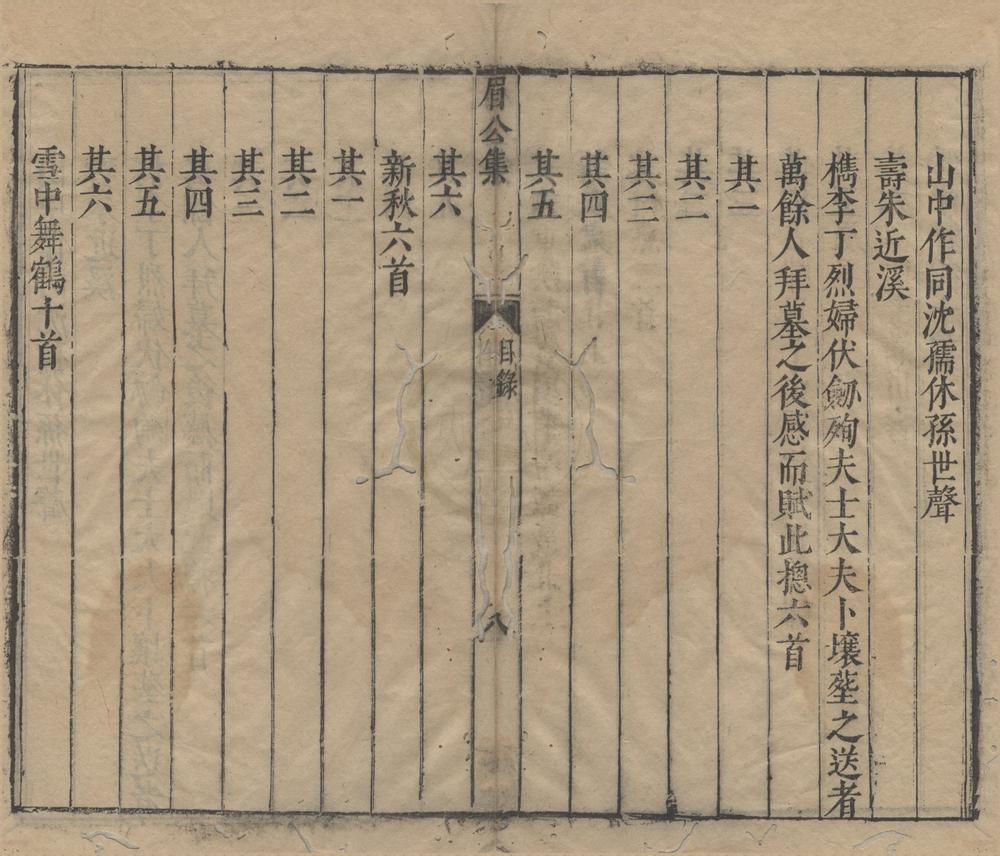 山中作同沈孺休孫世聲
壽朱近溪
檇李丁烈婦伏劒殉夫士大夫卜壤塟之送者
萬餘人拜墓之後感而賦此摠六首
其一
其二
其三
其四
其五
眉公集
目錄
八
其六
新秋六首
其一
其二
其三
其四
其五
其六
雪中舞鶴十首